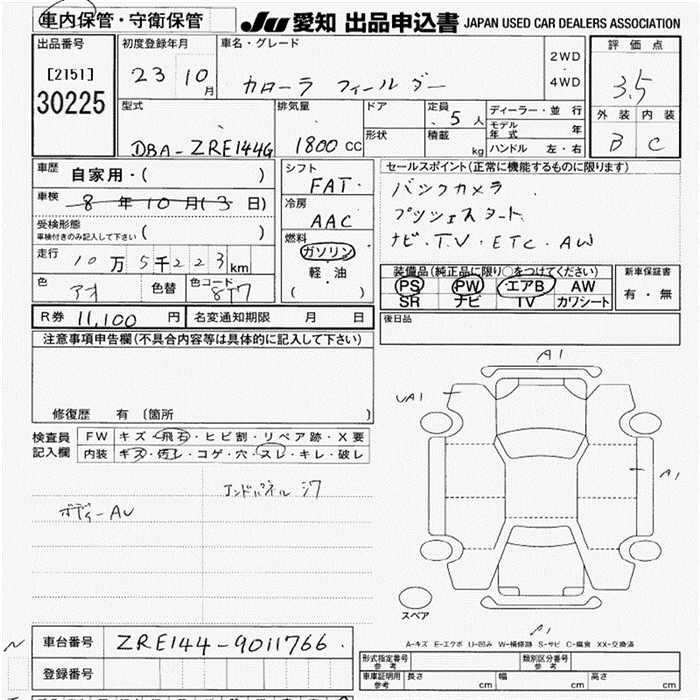 車内保管・守衛保管 JU 愛知 出品申込書 JAPAN USED CAR DEALERS ASSOCIATION
出品番号 初度登録年月 車名・グレード 評価点
[2151] 23 10月 カローラ フィールダー 2WD・4WD 3.5
30225 外装 内装
型式 排気量 ドア 定員 5人 ディーラー・並行 B C
DBA-ZRE144G 1800CC 形状 積載 kg モデル年式 年
ハンドル 左・右
車歴 自家用・( ) シフト FAT セールスポイント(正常に機能するものに限ります)
車検 8年10月(3日) 冷房 AAC バックカメラ
受検形態 車検付きのみ記入して下さい ( ) プッシュスタート
走行 10万5千223km 燃料 ガソリン ナビ・TV・ETC・AW
軽・油 ( )
色 アオ 色替 色コード 8T7 装備品(純正品に限り○をつけてください) 新車保証書
PS PW エアB AW 有・無
SR ナビ TV カワシート
R券 11,100円 名変通知期限 月 日 後日品
注意事項申告欄(不具合内容等は具体的に記入して下さい)
修復歴 有〔箇所 〕
A1
UA1
A1
検査員記入欄 FW キズ・飛石・ヒビ割・リペア跡・X要
内装 キズ・汚し・コゲ・穴・スレ・キレ・破し
エンドパネル シワ
ボディーAU
スペア
A1
A-キズ E-エクボ U-凹み W-補修跡 S-サビ C-腐食 XX-交換済
N 車台番号 ZRE144-9011766.
登録番号
形式指定番号 参考 類別区分番号 参考
車庫証明用 参考 長さ cm 幅 cm 高さ cm